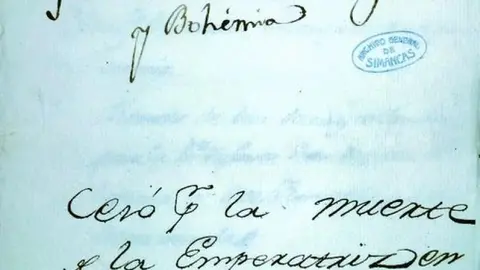 y Bohémia
ARCHIVO GENERAL
DE
SIMANCAS
Cesó la muerte
la Emperatriz en